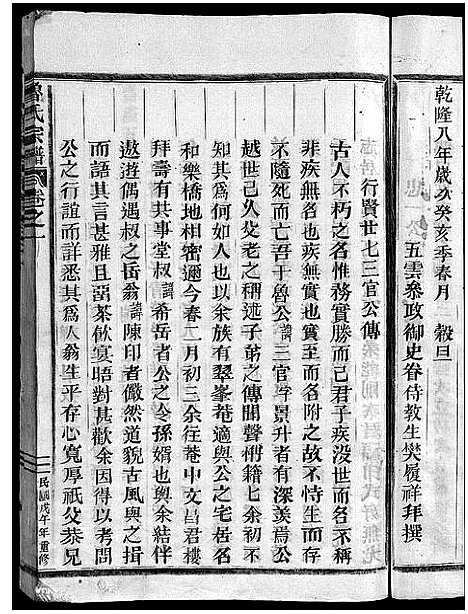 乾隆八年歲次癸亥季春月 穀旦
五雲參政御史眷侍教生樊履祥拜撰
行賢廿七三官公傳
古人不朽之名惟務實勝而已君子疾沒世而名不稱
非疾無名也疾無實也實之所至名亦附之故不待生而存
不隨死而亡吾于魯公諱三官字景升者有深羨焉公
越世已久父老之稱述子弟之傳聞聲稱籍籍余初不
知其為何如人也以余族有翠峯菴適與公之宅居名
和樂橋地相密邇今春二月初三余往菴中文昌君樓
拜壽有共事堂叔諱希岳者公之令孫壻也與余結伴
遨遊偶遇叔之岳翁諱陳印者儼然道貌古風與之揖
而語其言甚雅且留茶飲宴晤對甚歡余因得以考問
公之行誼而詳悉其為人翁生平存心寬厚祇父恭兄
魯氏宗譜 卷之一
民國戊午年重修